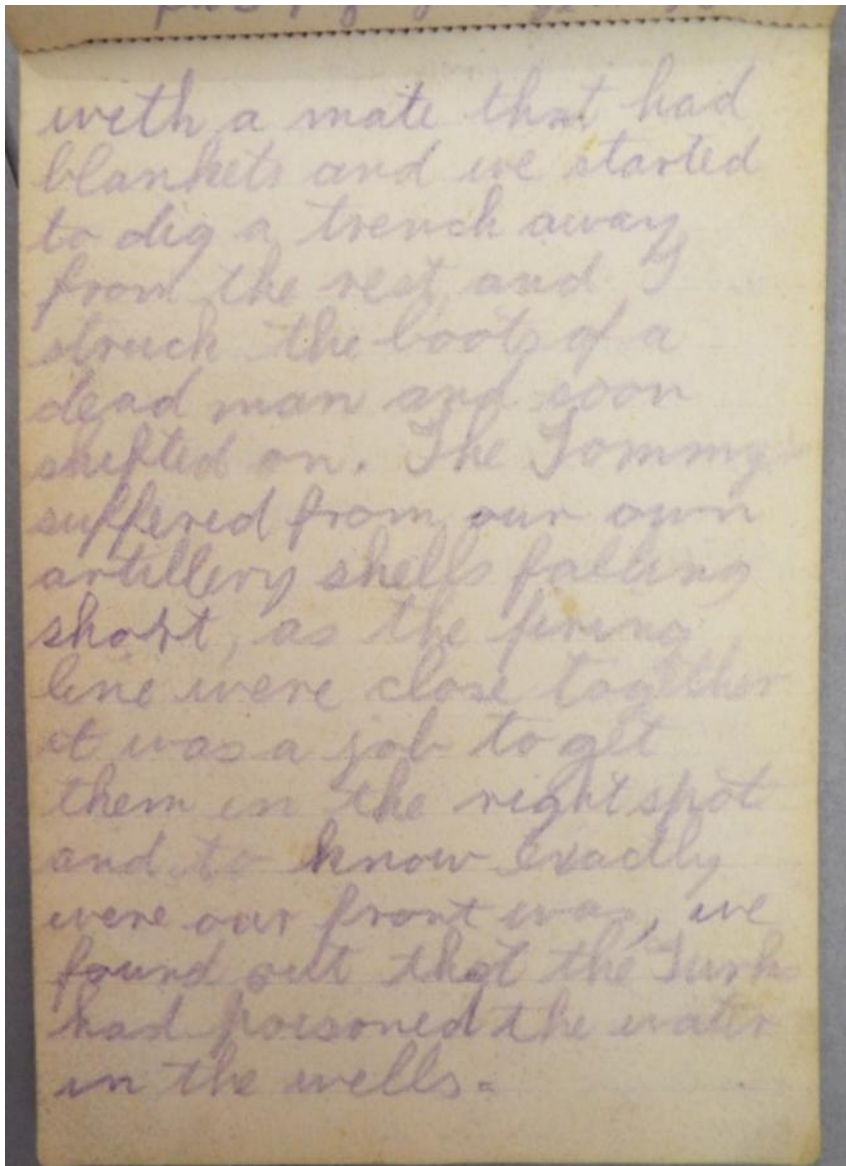 with a mate that had
blankets and we started
to dig a trench away
from the rest, and
struck the boots of a
dead man and soon
shifted on. The Tommy's
suffered from our own
artillery shells falling
short, as the firing
line were close together
it was a job to get
them in the right spot
and to know exactly
were our front was, we
found out that the Turks
had poisoned the water
in the wells.